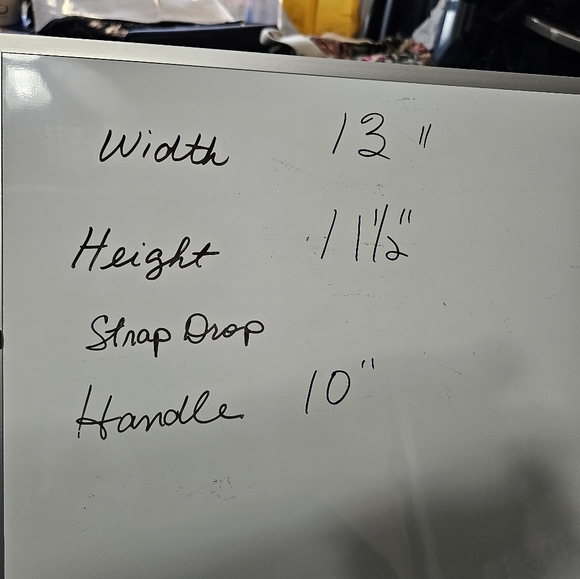 Width 13"
Height 11 1/2"
Strap Drop
Handle 10"